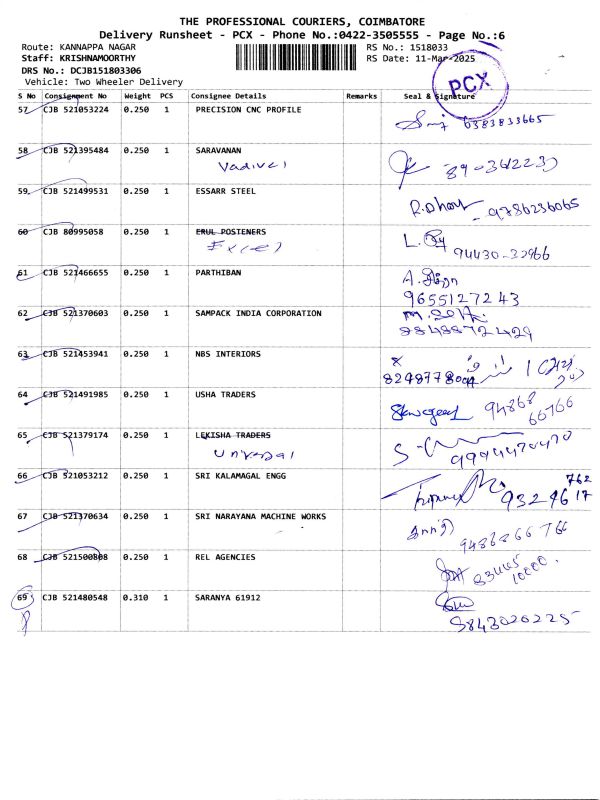 THE PROFESSIONAL COURIERS, COIMBATORE
Delivery Runsheet - PCX - Phone No.:0422-3505555 - Page No.:6
Route: KANNAPPA NAGAR RS No.: 1518033
Staff: KRISHNAMOORTHY RS Date: 11-Mar-2025
DRS No.: DCJB151803306
Vehicle: Two Wheeler Delivery
PCX
S No Consignment No Weight PCS Consignee Details Remarks Seal & Signature
57 CJB 521053224 0.250 1 PRECISION CNC PROFILE 6383833665
58 CJB 521395484 0.250 1 SARAVANAN
Vadivel
59 CJB 521499531 0.250 1 ESSARR STEEL 9786236065
60 CJB 80995058 0.250 1 ERUL POSTENERS
94430-32966
61 CJB 521466655 0.250 1 PARTHIBAN
9655127243
62 CJB 521370603 0.250 1 SAMPACK INDIA CORPORATION
63 CJB 521453941 0.250 1 NBS INTERIORS
64 CJB 521491985 0.250 1 USHA TRADERS 94868
66766
65 CJB 521379174 0.250 1 LEKISHA TRADERS
Universal 9994470470
66 CJB 521053212 0.250 1 SRI KALAMAGAL ENGG 762
9329617
67 CJB 521370634 0.250 1 SRI NARAYANA MACHINE WORKS
9486266766
68 CJB 521500808 0.250 1 REL AGENCIES 83445
10000.
69 CJB 521480548 0.310 1 SARANYA 61912
9843020225